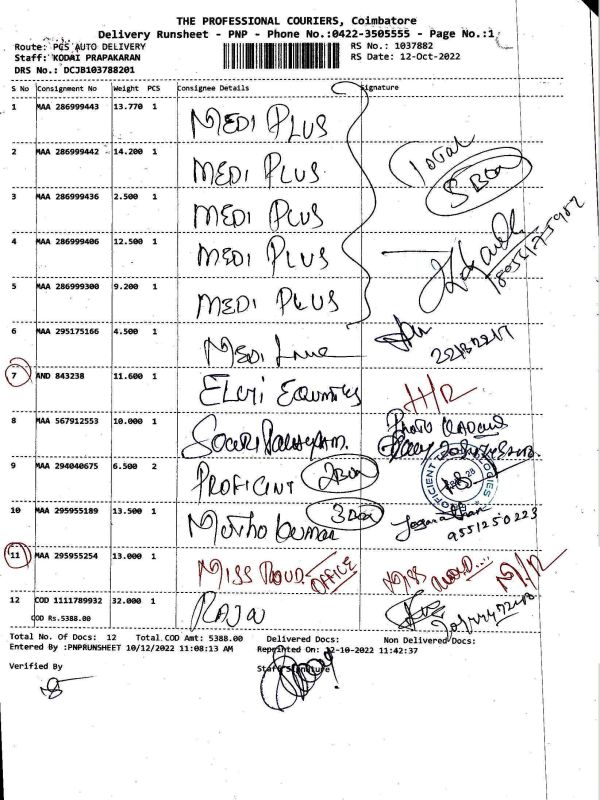 THE PROFESSIONAL COURIERS, Coimbatore
Delivery Runsheet - PNP - Phone No.:0422-3505555 - Page No.:1
Route: PCS AUTO DELIVERY RS No.: 1037882
Staff: KODAI PRAPAKARAN RS Date: 12-Oct-2022
DRS No.: DCJB103788201
S No Consignment No Weight PCS Consignee Details Signature
1 MAA 286999443 13.770 1 MEDI PLUS
2 MAA 286999442 14.200 1 MEDI PLUS
Total 5 Box
3 MAA 286999436 2.500 1 MEDI PLUS
4 MAA 286999406 12.500 1 MEDI PLUS
5 MAA 286999300 9.200 1 MEDI PLUS
6 MAA 295175166 4.500 1 MEDI
7 AND 843238 11.600 1
8 MAA 567912553 10.000 1
9 MAA 294040675 6.500 2 2 Box
10 MAA 295955189 13.500 1 3 Box
9551250223
11 MAA 295955254 13.000 1 MISS ROUD. OFFICE MISS
12 COD 1111789932 32.000 1 RAJA
COD Rs.5388.00
Total No. Of Docs: 12 Total COD Amt: 5388.00 Delivered Docs: Non Delivered Docs:
Entered By :PNPRUNSHEET 10/12/2022 11:08:13 AM Reprinted On: 12-10-2022 11:42:37
Verified By Staff Signature